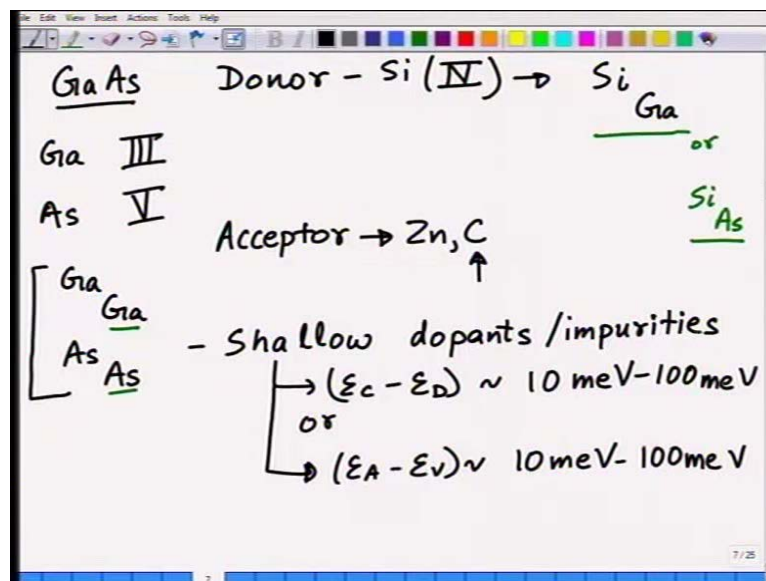 File Edit View Insert Actions Tools Help
B I
GaAs Donor - Si (IV) → Si Ga
or
Ga III
As V
Si As
Acceptor → Zn, C
↑
Ga Ga
As As
- Shallow dopants / impurities
→ (εC - εD) ~ 10 meV-100meV
or
→ (εA - εV) ~ 10meV- 100meV
7/25
7